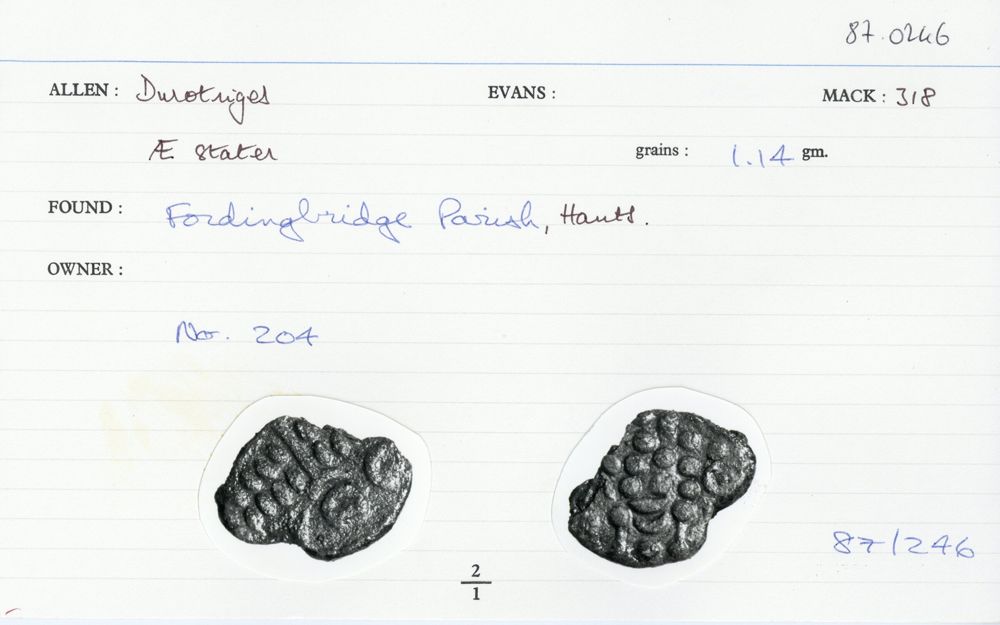 87.0246
ALLEN : Durotriges EVANS : MACK : 318
Æ stater grains : 1.14 gm.
FOUND : Fordingbridge Parish, Hants.
OWNER :
No. 204
87/246
2
1